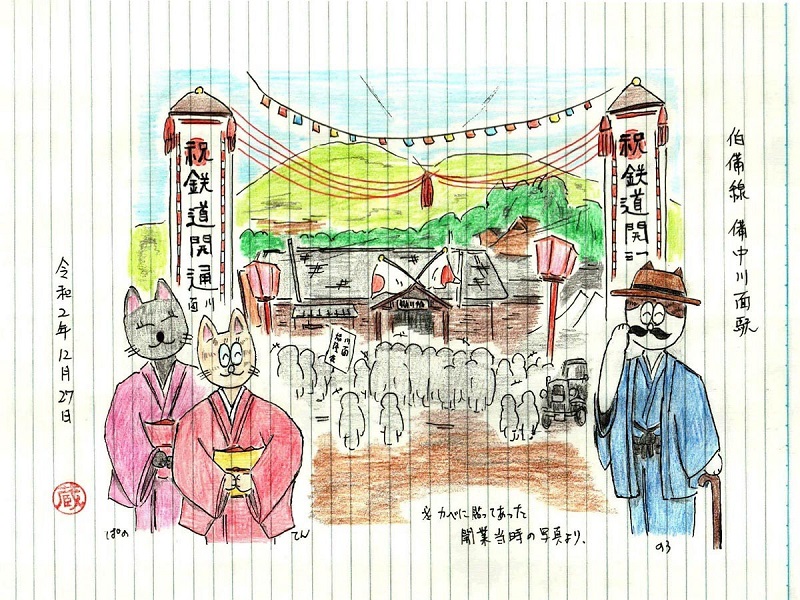 伯備線 備中川面駅
祝鉄道開通
祝鉄道開
川面
令和2年12月27日
蔵
ぱの
てん
のろ
※カベに貼ってあった
開業当時の写真より、